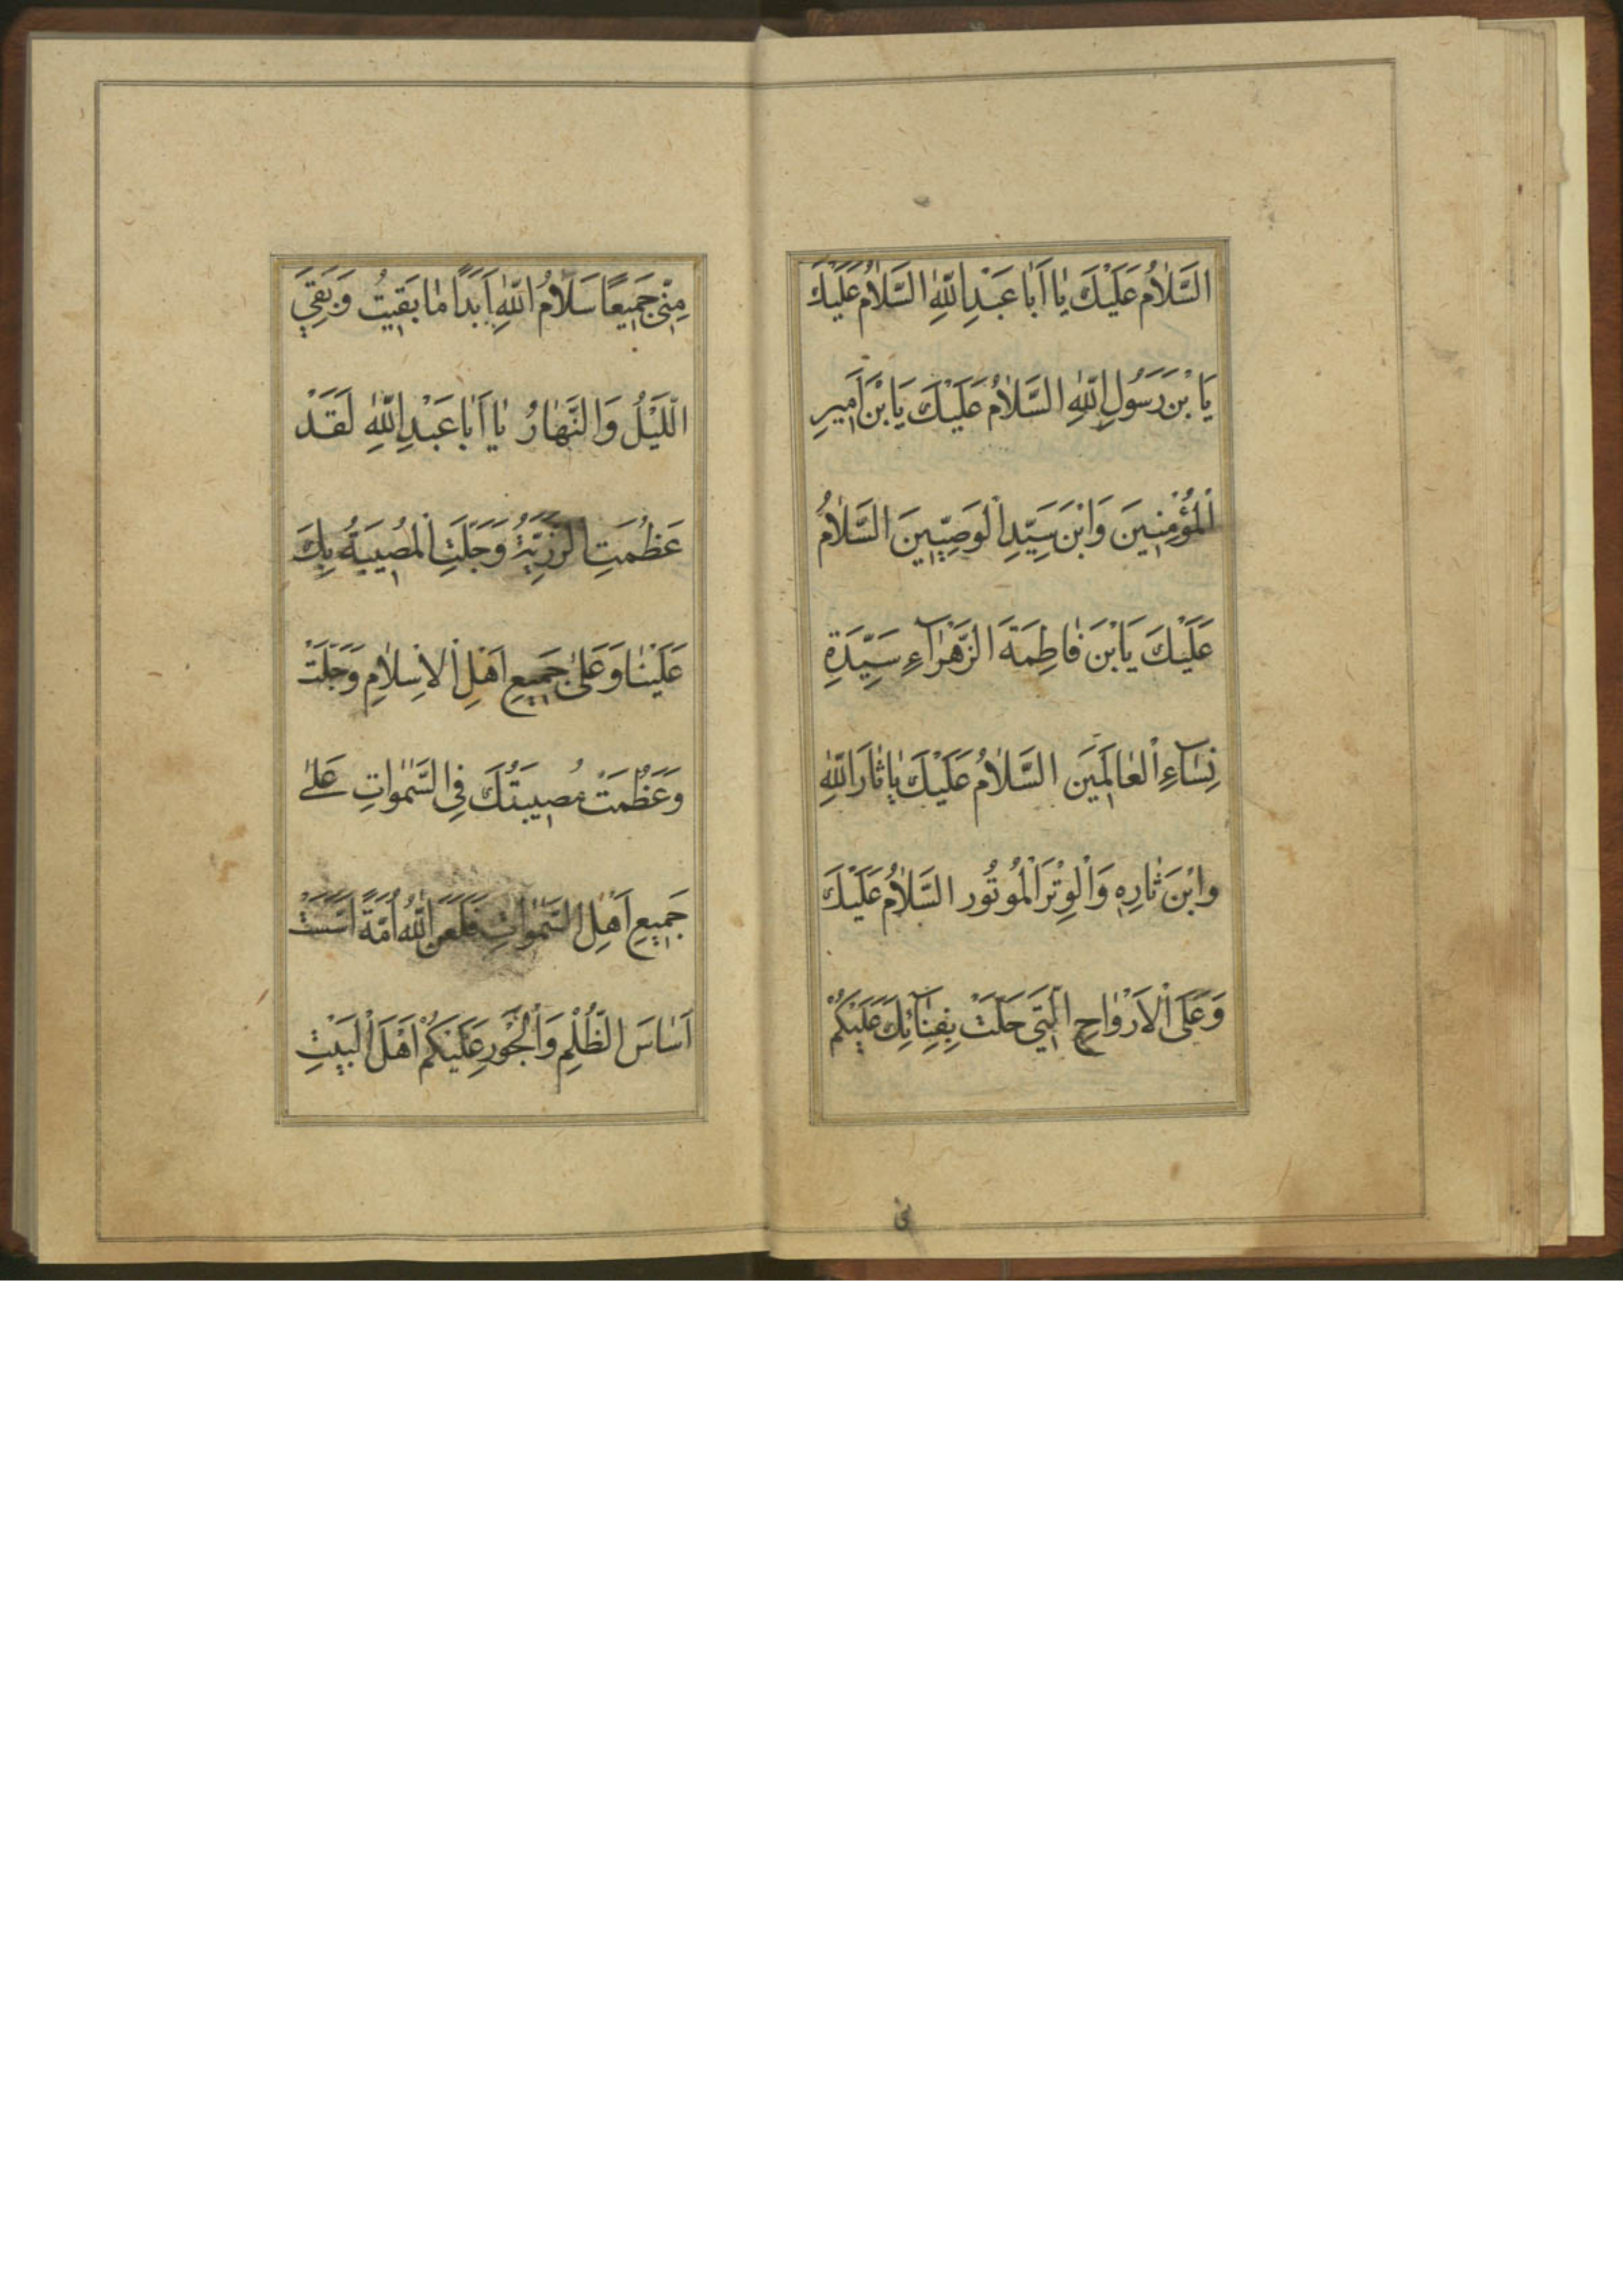 السَّلامُ عَلَيْكَ يا اَبا عَبْدِاللّهِ السَّلامُ عَلَيْكَ
يَا بْنَ رَسُولِ اللّهِ السَّلامُ عَلَيْكَ يَا بْنَ اَميرِ
الْمُؤْمِنينَ وَابْنَ سَيِّدِ الْوَصِيّينَ السَّلامُ
عَلَيْكَ يَا بْنَ فاطِمَةَ الزَّهْراۤءِ سَيِّدَةِ
نِساۤءِ الْعالَمينَ السَّلامُ عَلَيْكَ يا ثارَ اللّهِ
وابْنَ ثارِهِ وَالْوِتْرَ الْمُوتُور السَّلامُ عَلَيْكَ
وَعَلَى الْاَرْواحِ الَّتي حَلَّتْ بِفِناۤئِكَ عَلَيْكُمْ
مِنّي جَميعًا سَلامُ اللّهِ اَبَدًا ما بَقيتُ وَبَقِيَ
اللَّيْلُ وَالنَّهارُ يا اَبا عَبْدِاللّهِ لَقَدْ
عَظُمَتِ الرَّزِيَّةُ وَجَلَّتِ الْمُصيبَةُ بِكَ
عَلَيْنا وَعَلى جَميعِ اَهْلِ الْاِسْلامِ وَجَلَّتْ
وَعَظُمَتْ مُصيبَتُكَ فِي السَّمواتِ عَلى
جَميعِ اَهْلِ السَّمواتِ فَلَعَنَ اللّهُ اُمَّةً اَسَّسَتْ
اَساسَ الظُّلْمِ وَالْجَوْرِ عَلَيْكُمْ اَهْلَ الْبَيْتِ